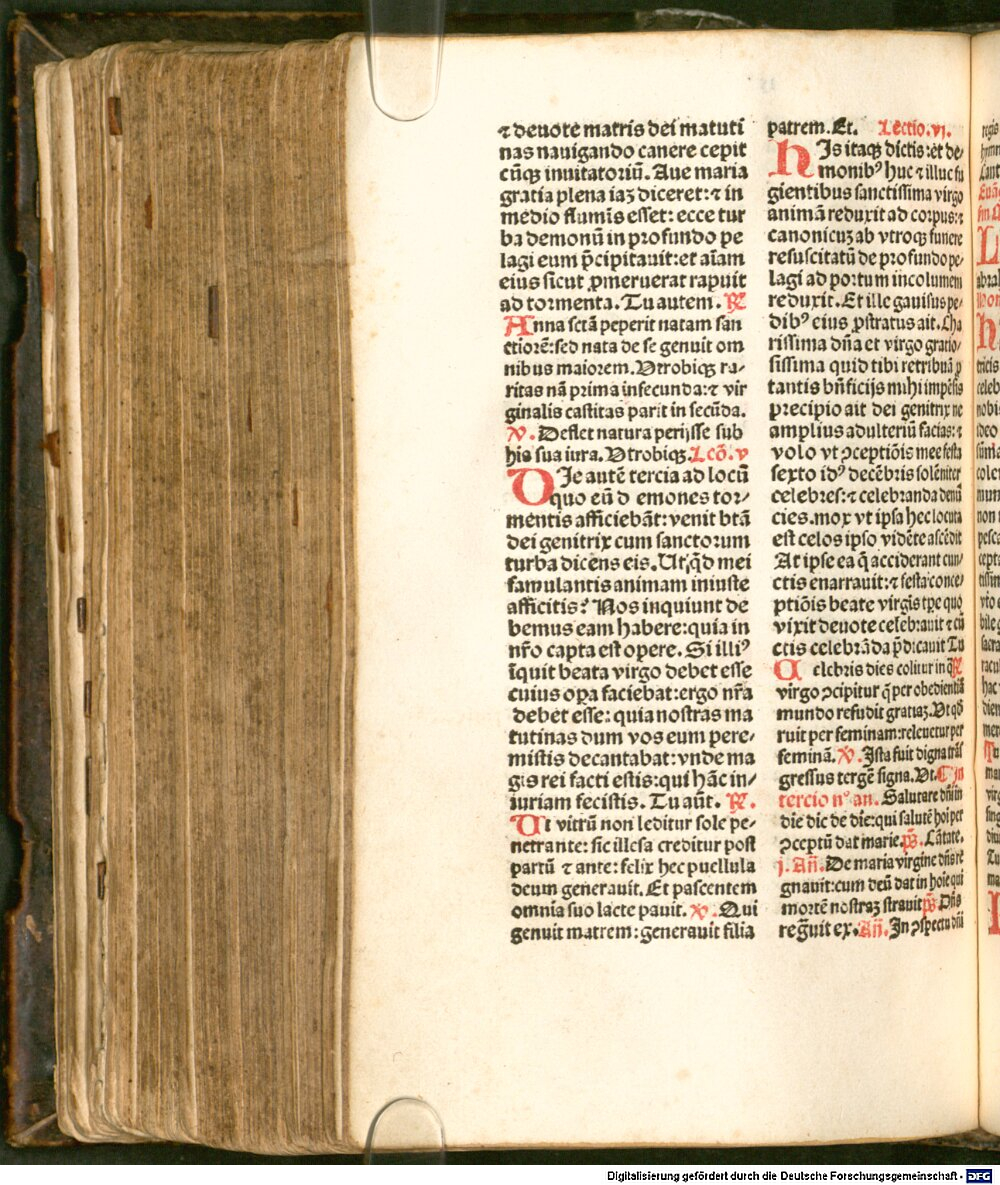 ⁊ deuote matris dei matuti
nas nauigando canere cepit
cūqꝫ inuitatoriū. Aue maria
gratia plena iaꝫ diceret: ⁊ in
medio flumīs esset: ecce tur
ba demonū in profundo pe
lagi eum p̄cipitauit: et aīam
eius sicut ꝓmeruerat rapuit
ad tormenta. Tu autem. ℟
Anna sctā peperit natam san
ctiorē: sed nata de se genuit om
nibus maiorem. Vtrobiqꝫ ra-
ritas nā prima infecunda: ⁊ vir
ginalis castitas parit in secūda.
℣. Deflet natura perijsse sub
his sua iura. Vtrobiqꝫ. Lcō. v
Die autē tercia ad locū
quo eū d emones tor-
mentis afficiebāt: venit btā
dei genitrix cum sanctorum
turba dicens eis. Ut qd̄ mei
famulantis animam iniuste
afficitis? Nos inquiunt de
bemus eam habere: quia in
nr̄o capta est opere. Si illiꝰ
īquit beata virgo debet esse
cuius oꝑa faciebat: ergo nr̄a
debet esse: quia nostras ma
tutinas dum vos eum pere-
mistis decantabat: vnde ma
gis rei facti estis: qui hāc in-
iuriam fecistis. Tu aūt. ℟.
Ut vitrū non leditur sole pe-
netrante: sic illesa creditur post
partū ⁊ ante: felix hec puellula
deum generauit. Et pascentem
omnia suo lacte pauit. ℣. Qui
genuit matrem: generauit filia
patrem. Et. Lectio. vj.
His itaqꝫ dictis: et de-
monibꝰ huc ⁊ illuc fu
gientibus sanctissima virgo
animā reduxit ad corpus: ⁊
canonicuꝫ ab vtroqꝫ funere
resuscitatū de profundo pe-
lagi ad portum incolumem
reduxit. Et ille gauisus pe-
dibꝰ eius ꝓstratus ait. Cha
rissima dn̄a et virgo gratio-
sissima quid tibi retribuā ꝓ
tantis bn̄ficijs mihi impēsis
precipio ait dei genitrix ne
amplius adulteriū facias: ⁊
volo vt ↄceptiōis mee festa
sexto idꝰ decēbris solēniter
celebres: ⁊ celebranda denū
cies. mox vt ipsa hec locuta
est celos ipso vidēte ascēdit
At ipse ea q̄ acciderant cun-
ctis enarrauit: ⁊ festa conce-
ptiōis beate virgīs tꝑe quo
vixit deuote celebrauit ⁊ cū
ctis celebrāda p̄dicauit Tu
Celebris dies colitur in q̄ ℟
virgo ↄcipitur q̄ per obedientiā
mundo refudit gratiaꝫ. Vt qđ
ruit per feminam: releuetur per
feminā. ℣. Ista fuit digna trās
gressus tergē signa. Vt. C Jn
tercio nº an. Salutare dn̄i in
die dic de die: qui salutē hoī per
ↄceptū dat marie. ps̄. Cātate.
j. An̄. De maria virgine dn̄s re
gnauit: cum deū dat in hoīe qui
mortē nostraꝫ strauit ps̄. Dn̄s
reg̅uit ex. An̄. Jn ↄspectu dn̄i
Digitalisierung gefördert durch die Deutsche Forschungsgemeinschaft - DFG